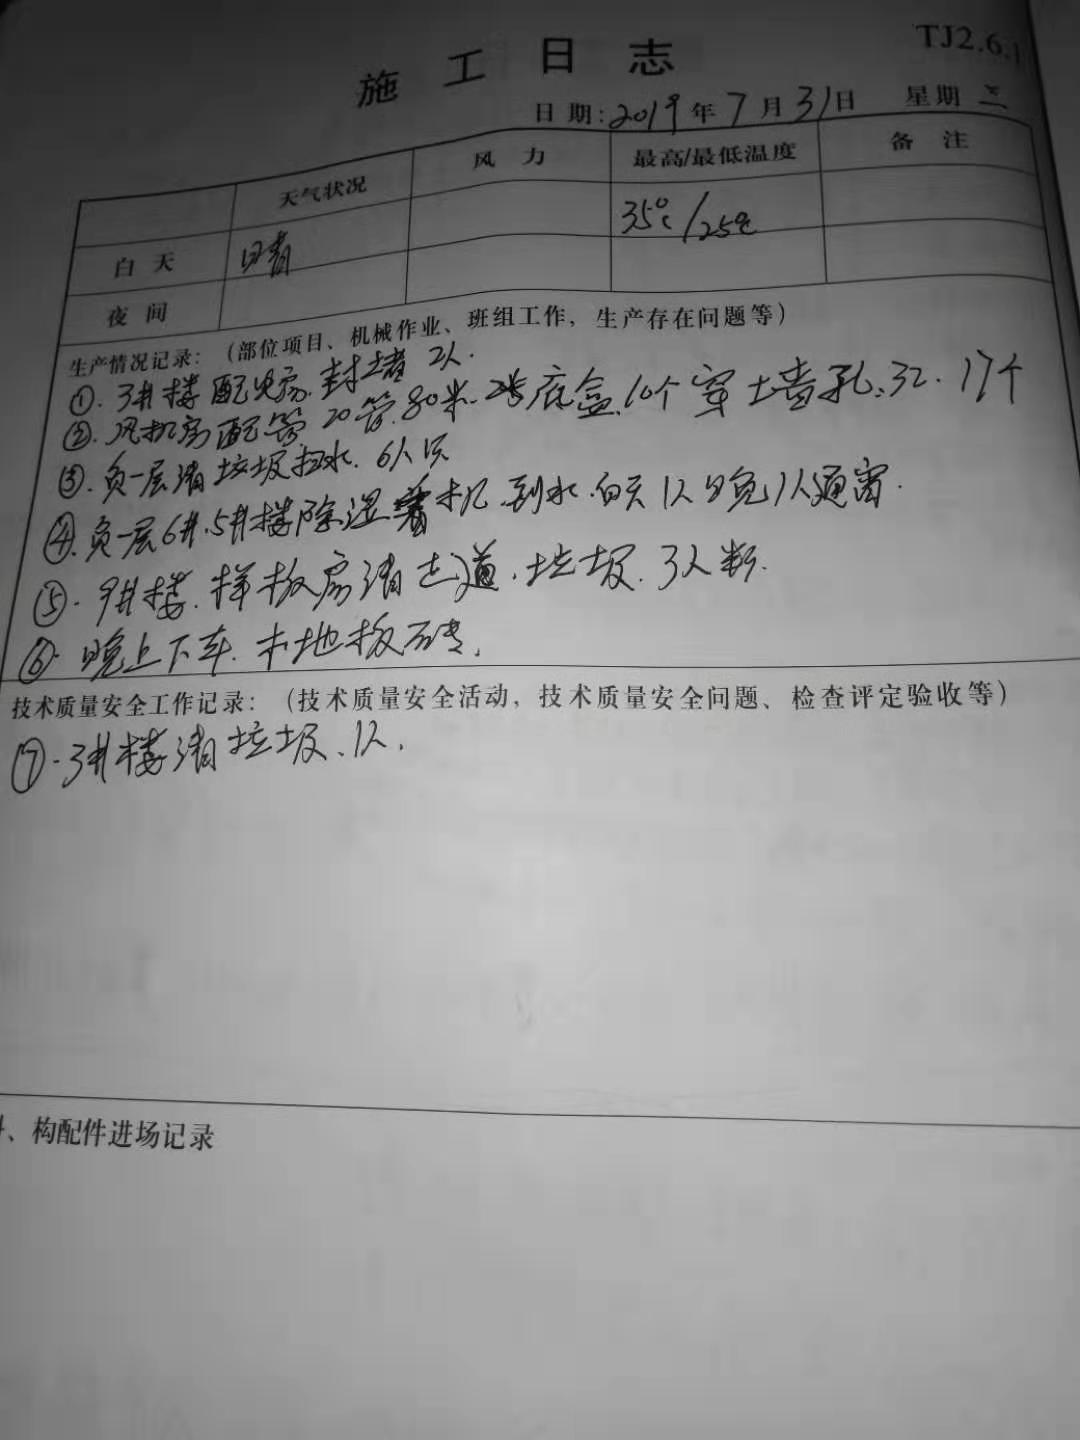 TJ2.6.1
施工日志
日期:2019年7月31日 星期三
天气状况 风力 最高/最低温度 备注
白天 晴 35℃/25℃
夜间
生产情况记录：（部位项目、机械作业、班组工作，生产存在问题等）
①.3#楼配电房.封堵 2人.
②.风机房配管.20管.80米.底盒.10个穿墙孔.32.17个
③.负一层清垃圾扫水.6人
④.负一层6#.5#楼除湿机.到水.白天1人晚1人通宵.
⑤.9#楼.样板房清走道.垃圾.3人
⑥.晚上下车.木地板砖.
技术质量安全工作记录：（技术质量安全活动，技术质量安全问题、检查评定验收等）
⑦.3#楼清垃圾.1人.
、构配件进场记录